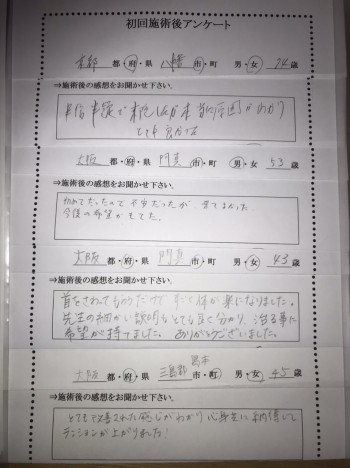 初回施術後アンケート
京都 都・府・県 八幡 市・町 男・女 24歳
⇒施術後の感想をお聞かせ下さい.
原因がわかり
とても
大阪 都・府・県 門真 市・町 男・女 53歳
⇒施術後の感想をお聞かせ下さい.
初めてだったので不安だったが 来てよかった
今後の希望がもてた.
大阪 都・府・県 門真 市・町 男・女 43歳
⇒施術後の感想をお聞かせ下さい.
首をされて すごく体が楽になりました。
先生の細かい説明もとても良く分かり、治る事に
希望が持てました。ありがとうございました。
大阪 都・府・県 三島郡 島本 市・町 男・女 45歳
⇒施術後の感想をお聞かせ下さい.
とても改善された感じがわかり 心身共に
テンションが上がりました!